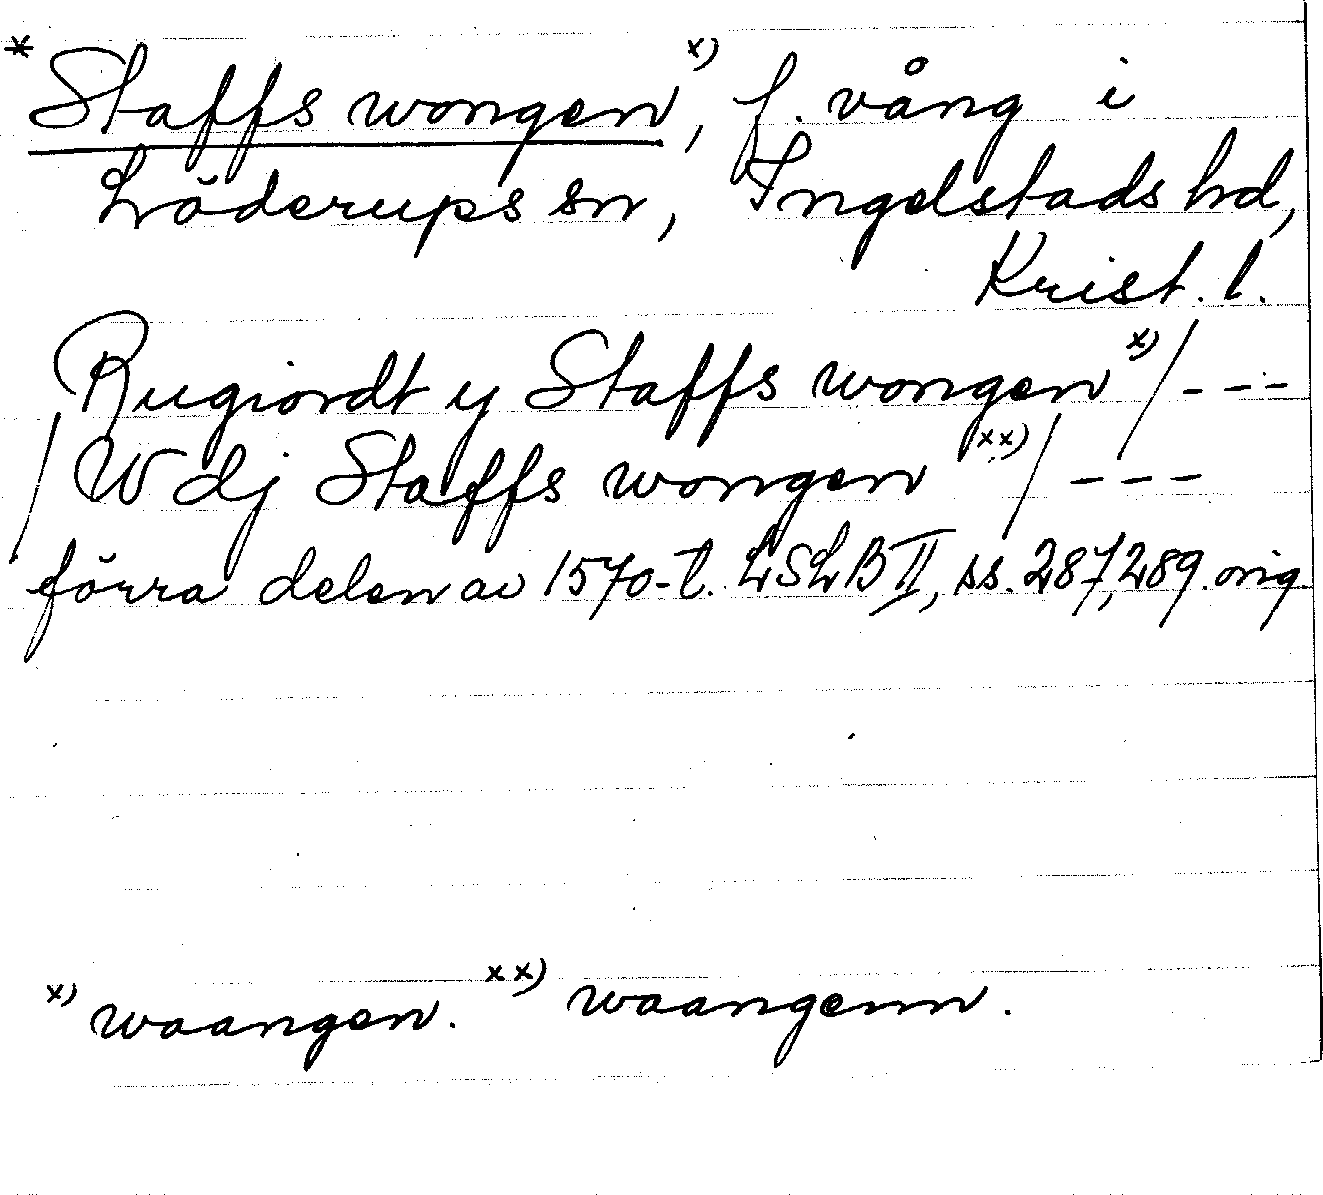 * Staffs wongen x), f. vång i
Löderups sn, Ingelstads hd,
Krist. l.
Rugiordt y Staffs wongen x) / - - -
/ W dj Staffs wongen xx) / - - -
förra delen av 1570-t. LSLB II, ss. 287, 289. orig.
x) waangen. xx) waangenn.